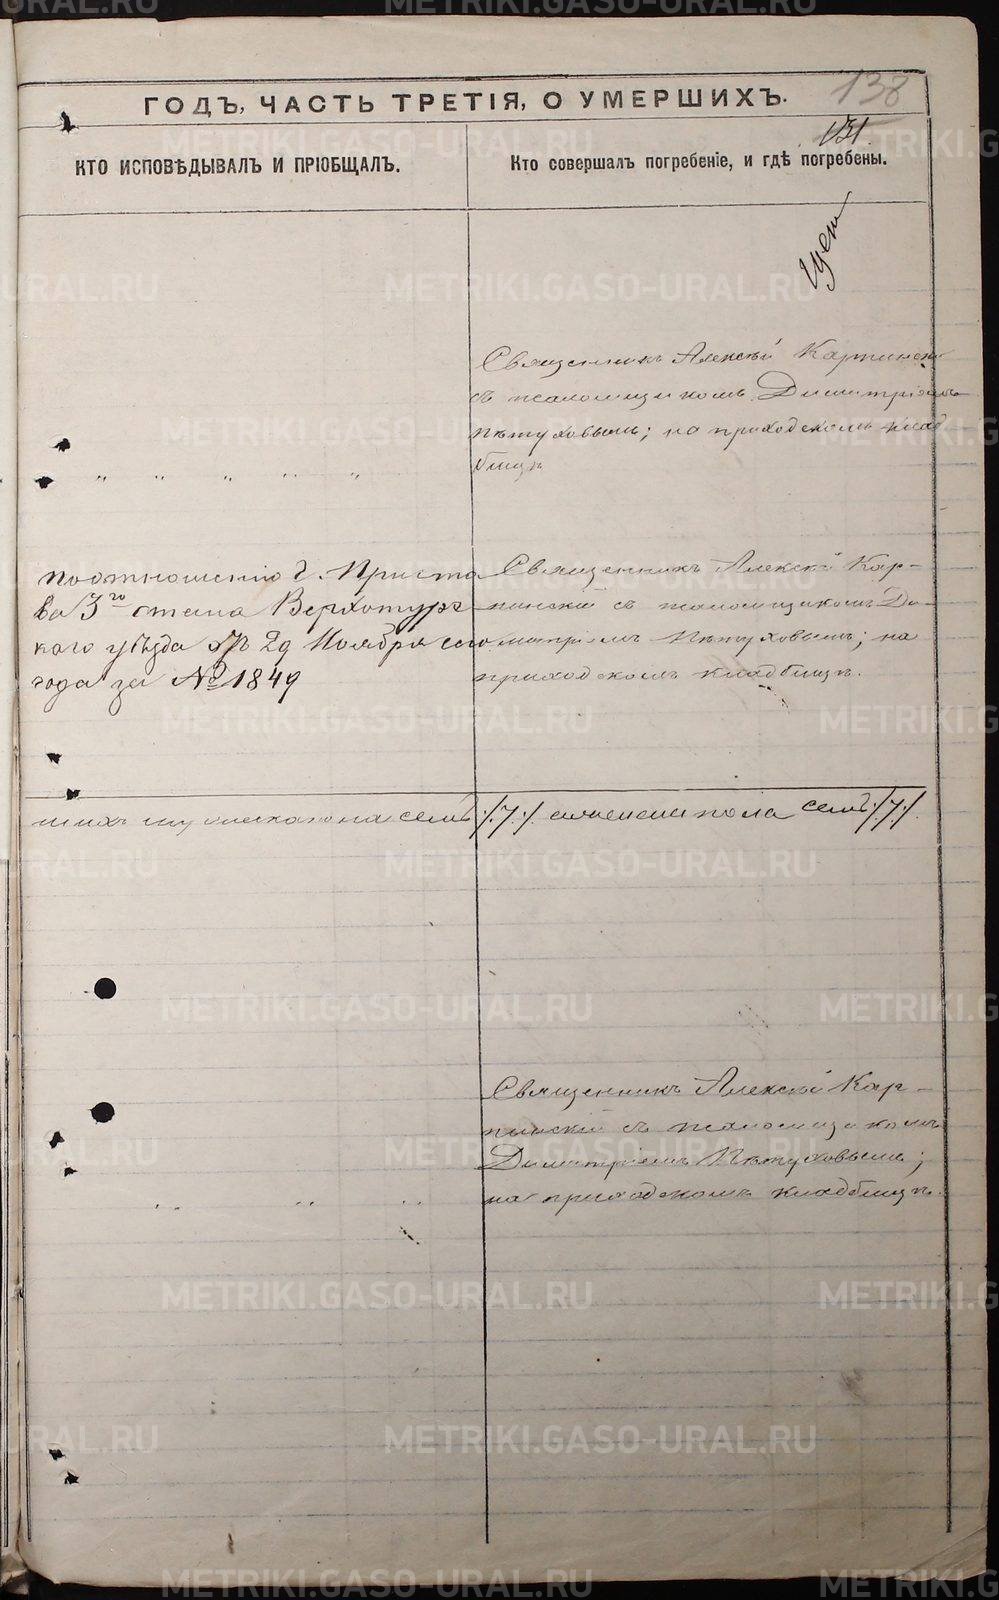 138
ГОДЪ, ЧАСТЬ ТРЕТІЯ, О УМЕРШИХЪ.
151
КТО ИСПОВѢДЫВАЛЪ И ПРІОБЩАЛЪ.
Кто совершалъ погребеніе, и гдѣ погребены.
Священникъ Алексѣй Карпинскій
съ псаломщикомъ Димитріемъ
Пѣтуховымъ; на приходскомъ клад
бищѣ
" " " " "
по отношенію г. Приста
ва 3го стана Верхотурс
каго уѣзда отъ 29 Ноября сего
года за № 1849
Священникъ Алексѣй Кар-
пинскій съ псаломщикомъ Ди-
митріемъ Пѣтуховымъ; на
приходскомъ кладбищѣ.
шихъ мужескаго пола семь /7/ женскаго пола семь /7/.
Священникъ Алексѣй Кар-
пинскій съ псаломщикомъ
Димитріемъ Пѣтуховымъ;
на приходскомъ кладбищѣ.
" " "
METRIKI.GASO-URAL.RU